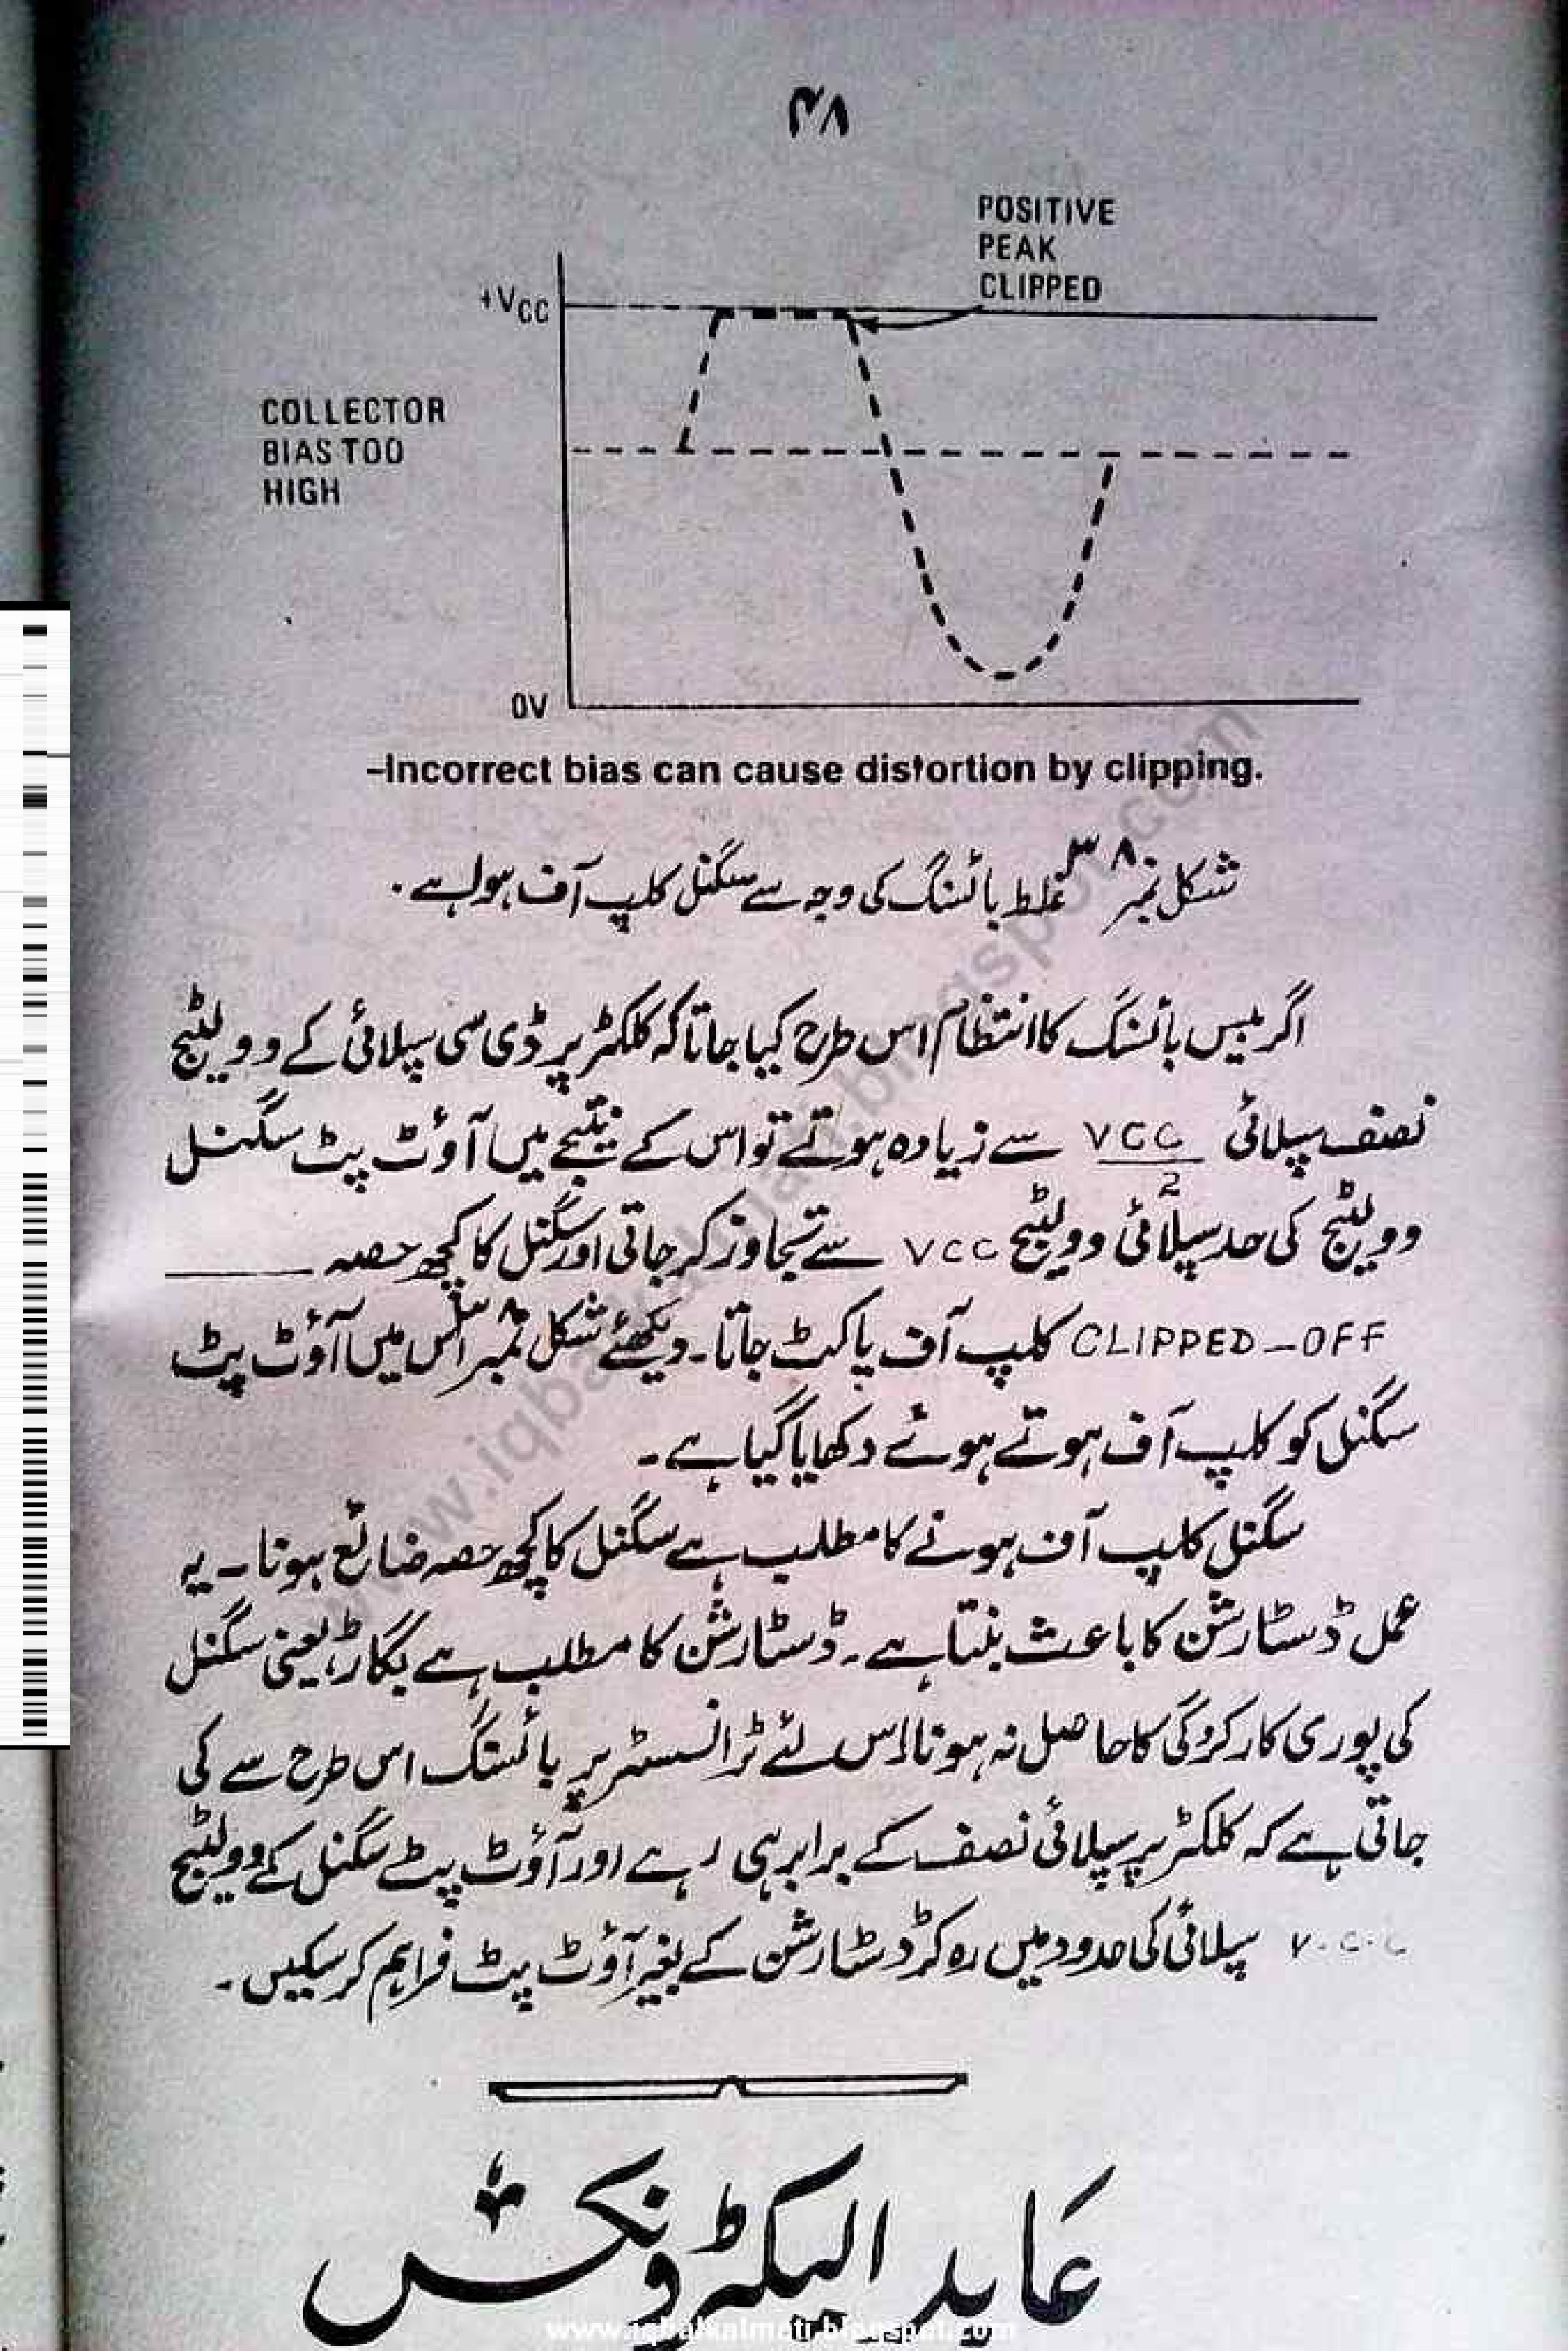 ۴۸
POSITIVE
PEAK
CLIPPED
+VCC
COLLECTOR
BIAS TOO
HIGH
0V
–Incorrect bias can cause distortion by clipping.
شکل نمبر ۳۸ غلط بائسنگ کی وجہ سے سگنل کلپ آف ہوا ہے۔
اگر بیس بائسنگ کا انتظام اس طرح کیا جاتا کہ کلکٹر پر ڈی سی سپلائی کے وولٹیج
نصف سپلائی VCC/2 سے زیادہ ہوتے تو اس کے نتیجے میں آوٹ پٹ سگنل
وولٹیج کی حد سپلائی وولٹیج VCC سے تجاوز کر جاتی اور سگنل کا کچھ حصہ ـــــــ
CLIPPED-OFF کلپ آف یا کٹ جاتا۔ دیکھئے شکل نمبر ۳۸ اس میں آؤٹ پٹ
سگنل کو کلپ آف ہوتے ہوئے دکھایا گیا ہے۔
سگنل کلپ آف ہونے کا مطلب ہے سگنل کا کچھ حصہ ضائع ہونا۔ یہ
عمل ڈسٹارشن کا باعث بنتا ہے۔ ڈسٹارشن کا مطلب ہے بگاڑ یعنی سگنل
کی پوری کارکردگی کا حاصل نہ ہونا اس لئے ٹرانسسٹر پر بائسنگ اس طرح سے کی
جاتی ہے کہ کلکٹر پر سپلائی نصف کے برابر ہی رہے اور آؤٹ پٹ سگنل کے وولٹیج
V.C.C سپلائی کی حدود میں رہ کر ڈسٹارشن کے بغیر آؤٹ پٹ فراہم کر سکیں۔
عابد الیکٹرونکس
www.iqbalkalmati.blogspot.com
www.iqbalkalmati.blogspot.com